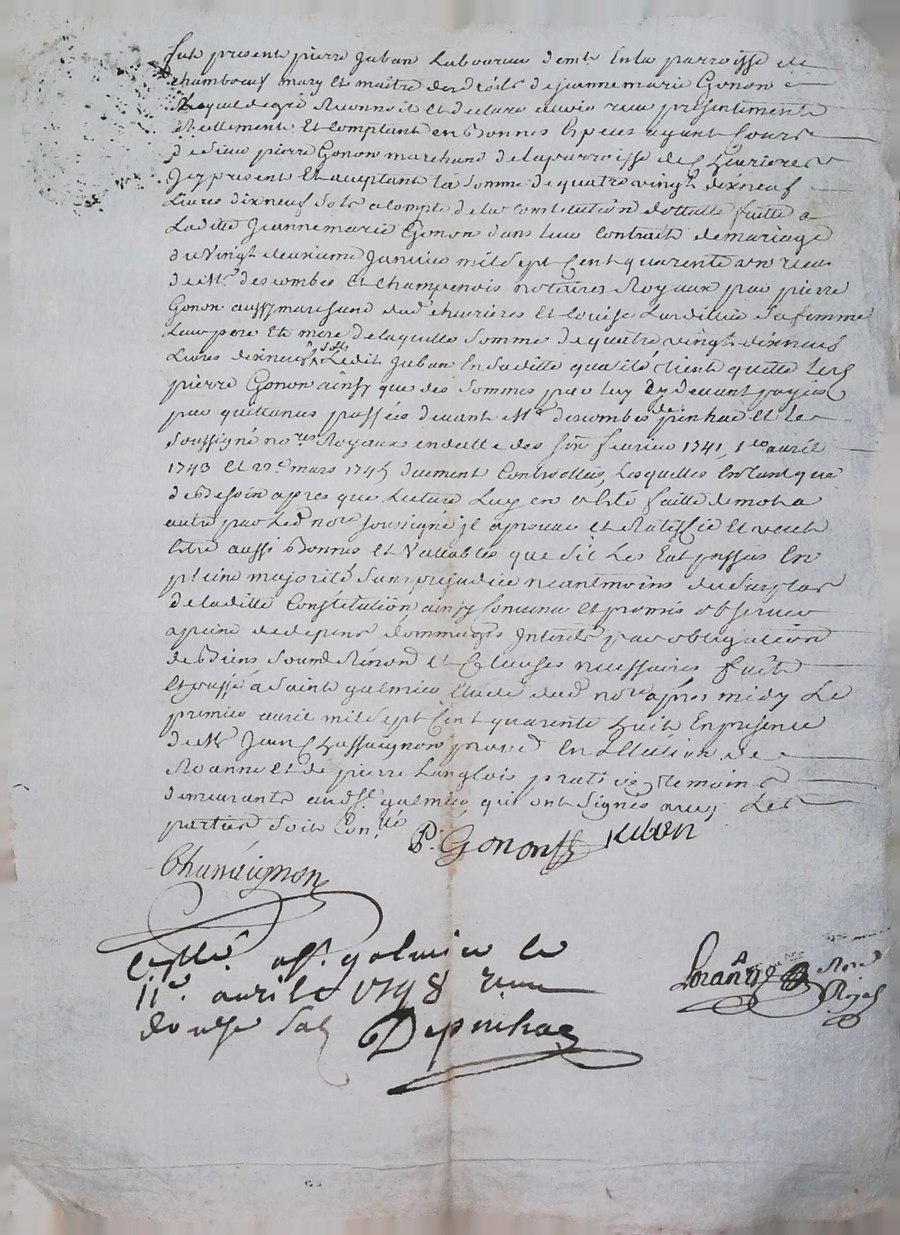 fut présent pierre Juban Laboureur demt En la parroisse de
chambœuf mary et maitre des droits de jeanne marie Gonon
Lequel de gré Reconnoit et declare avoir reçu présentement
Réellement Et Comptant en Bonnes Especes ayant Cours
de Sieur pierre Gonon marchand de la parroisse de Chevrieres
Icy present Et aceptant la Somme de quatre vingt dixneuf
Livres dixneuf Sols a Compte de la Constitution dottalle faitte a
Ladite Jeanne marie Gonon dans leur Contrait de mariage
du vingt deuxieme Janvier mil Sept Cent quarente un reçu
de Mes descombes et Champenois notaires Royaux par pierre
Gonon aussy marchand dud chevrieres Et Louise Lardellier Sa femme
Leur pere Et mere de laquelle Somme de quatre vingt dixneuf
Livres dixneuf Sols Ledit Juban En Sadite qualité tient quitte led
pierre Gonon ainsy que des Sommes par luy Cy devant payées
par quittances passées devant Mes descombes depinhac et le
Soussigné nores Royaux en datte des fevrier 1741, 1er avril
1743 et mars 1745 duement Controllées, Lesquelles En tant que
de Besoin apres que Lecture Luy en a été faitte de mot a
autre par Led nore Soussigné il aprouve et Ratiffie Et veut
être aussi Bonnes et Valables que Sil Les Eut passés En
pleine majorité Sans prejudice neantmoins du Surplus
de ladite Constitution ainsy Convenu Et promis observer
a peine de depens dommages Interets par obligation
de Biens Soum Renon et Clauses necessaires fait
Et passé a Saint galmier Etude dud nore après midy Le
premier avril mil Sept Cent quarente huit En presence
de Mr Jean Chassaignon procur En Election de
Roanne Et de pierre Langlois praticien temoins
demeurants aud St galmier qui ont Signés avec Les
parties Soit Conllé
P. Gonon Juban
Chassaignon
Conllé a St galmier le
11e avrile 1748 reçu
douze Sols Depinhac
Nore
Royal